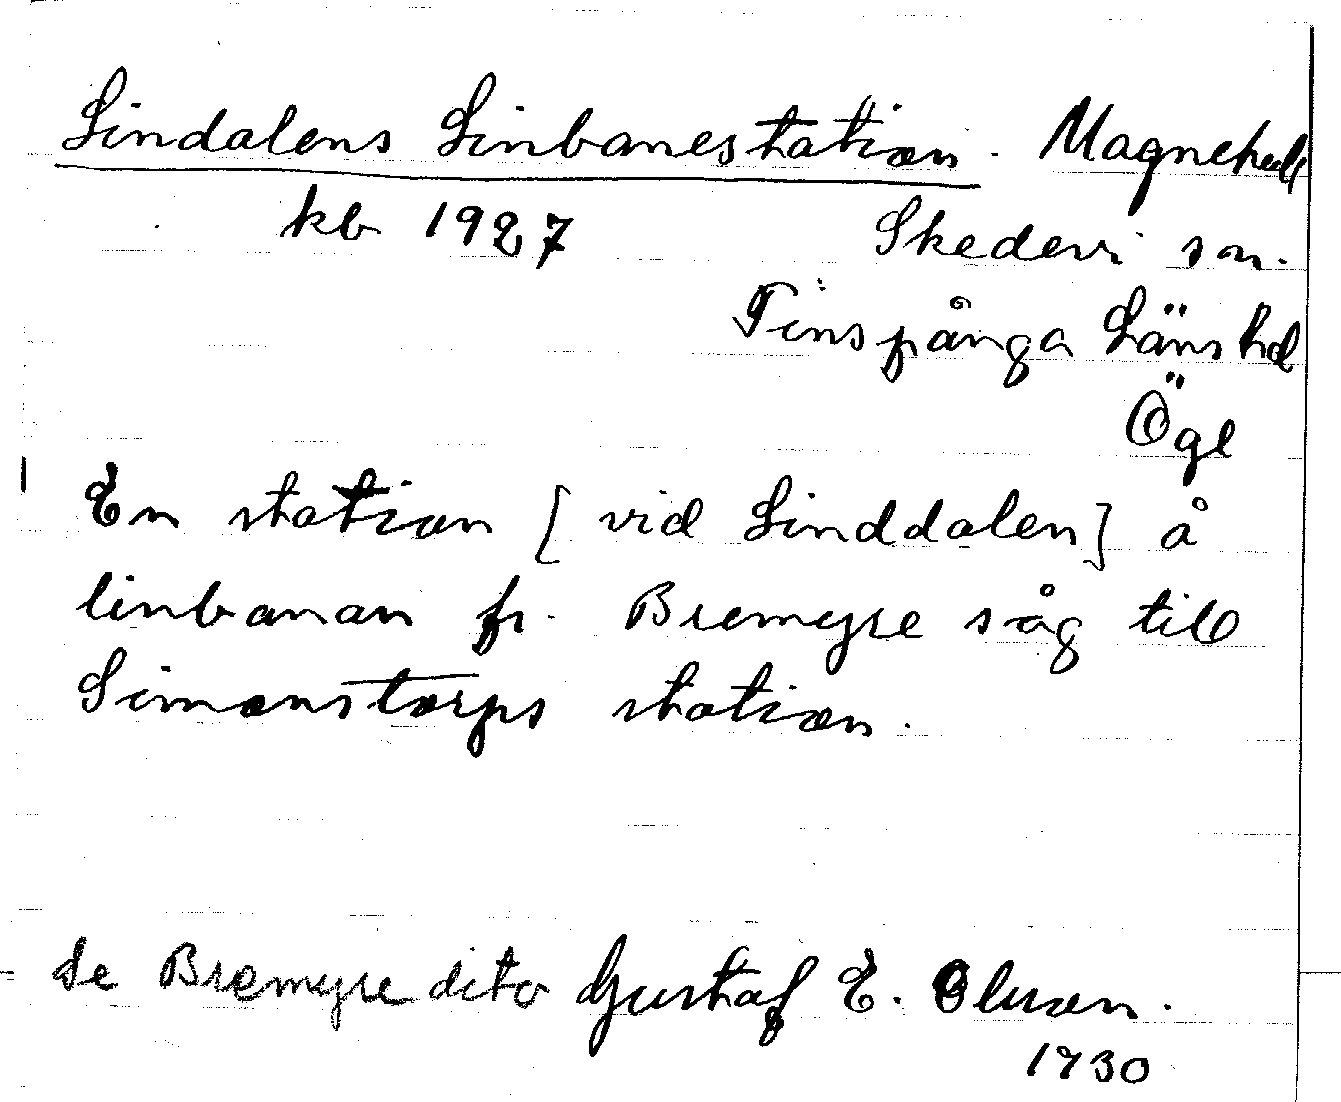 Lindalens Linbanestation. Magnehult
kb 1927 Skedevi sn.
Finspånga Länshd
Ögl
En station [vid Linddalen] å
linbanan fr. Bremyre såg till
Simonstorps station.
Se Bremyre dito Gustaf E. Olsson.
1930